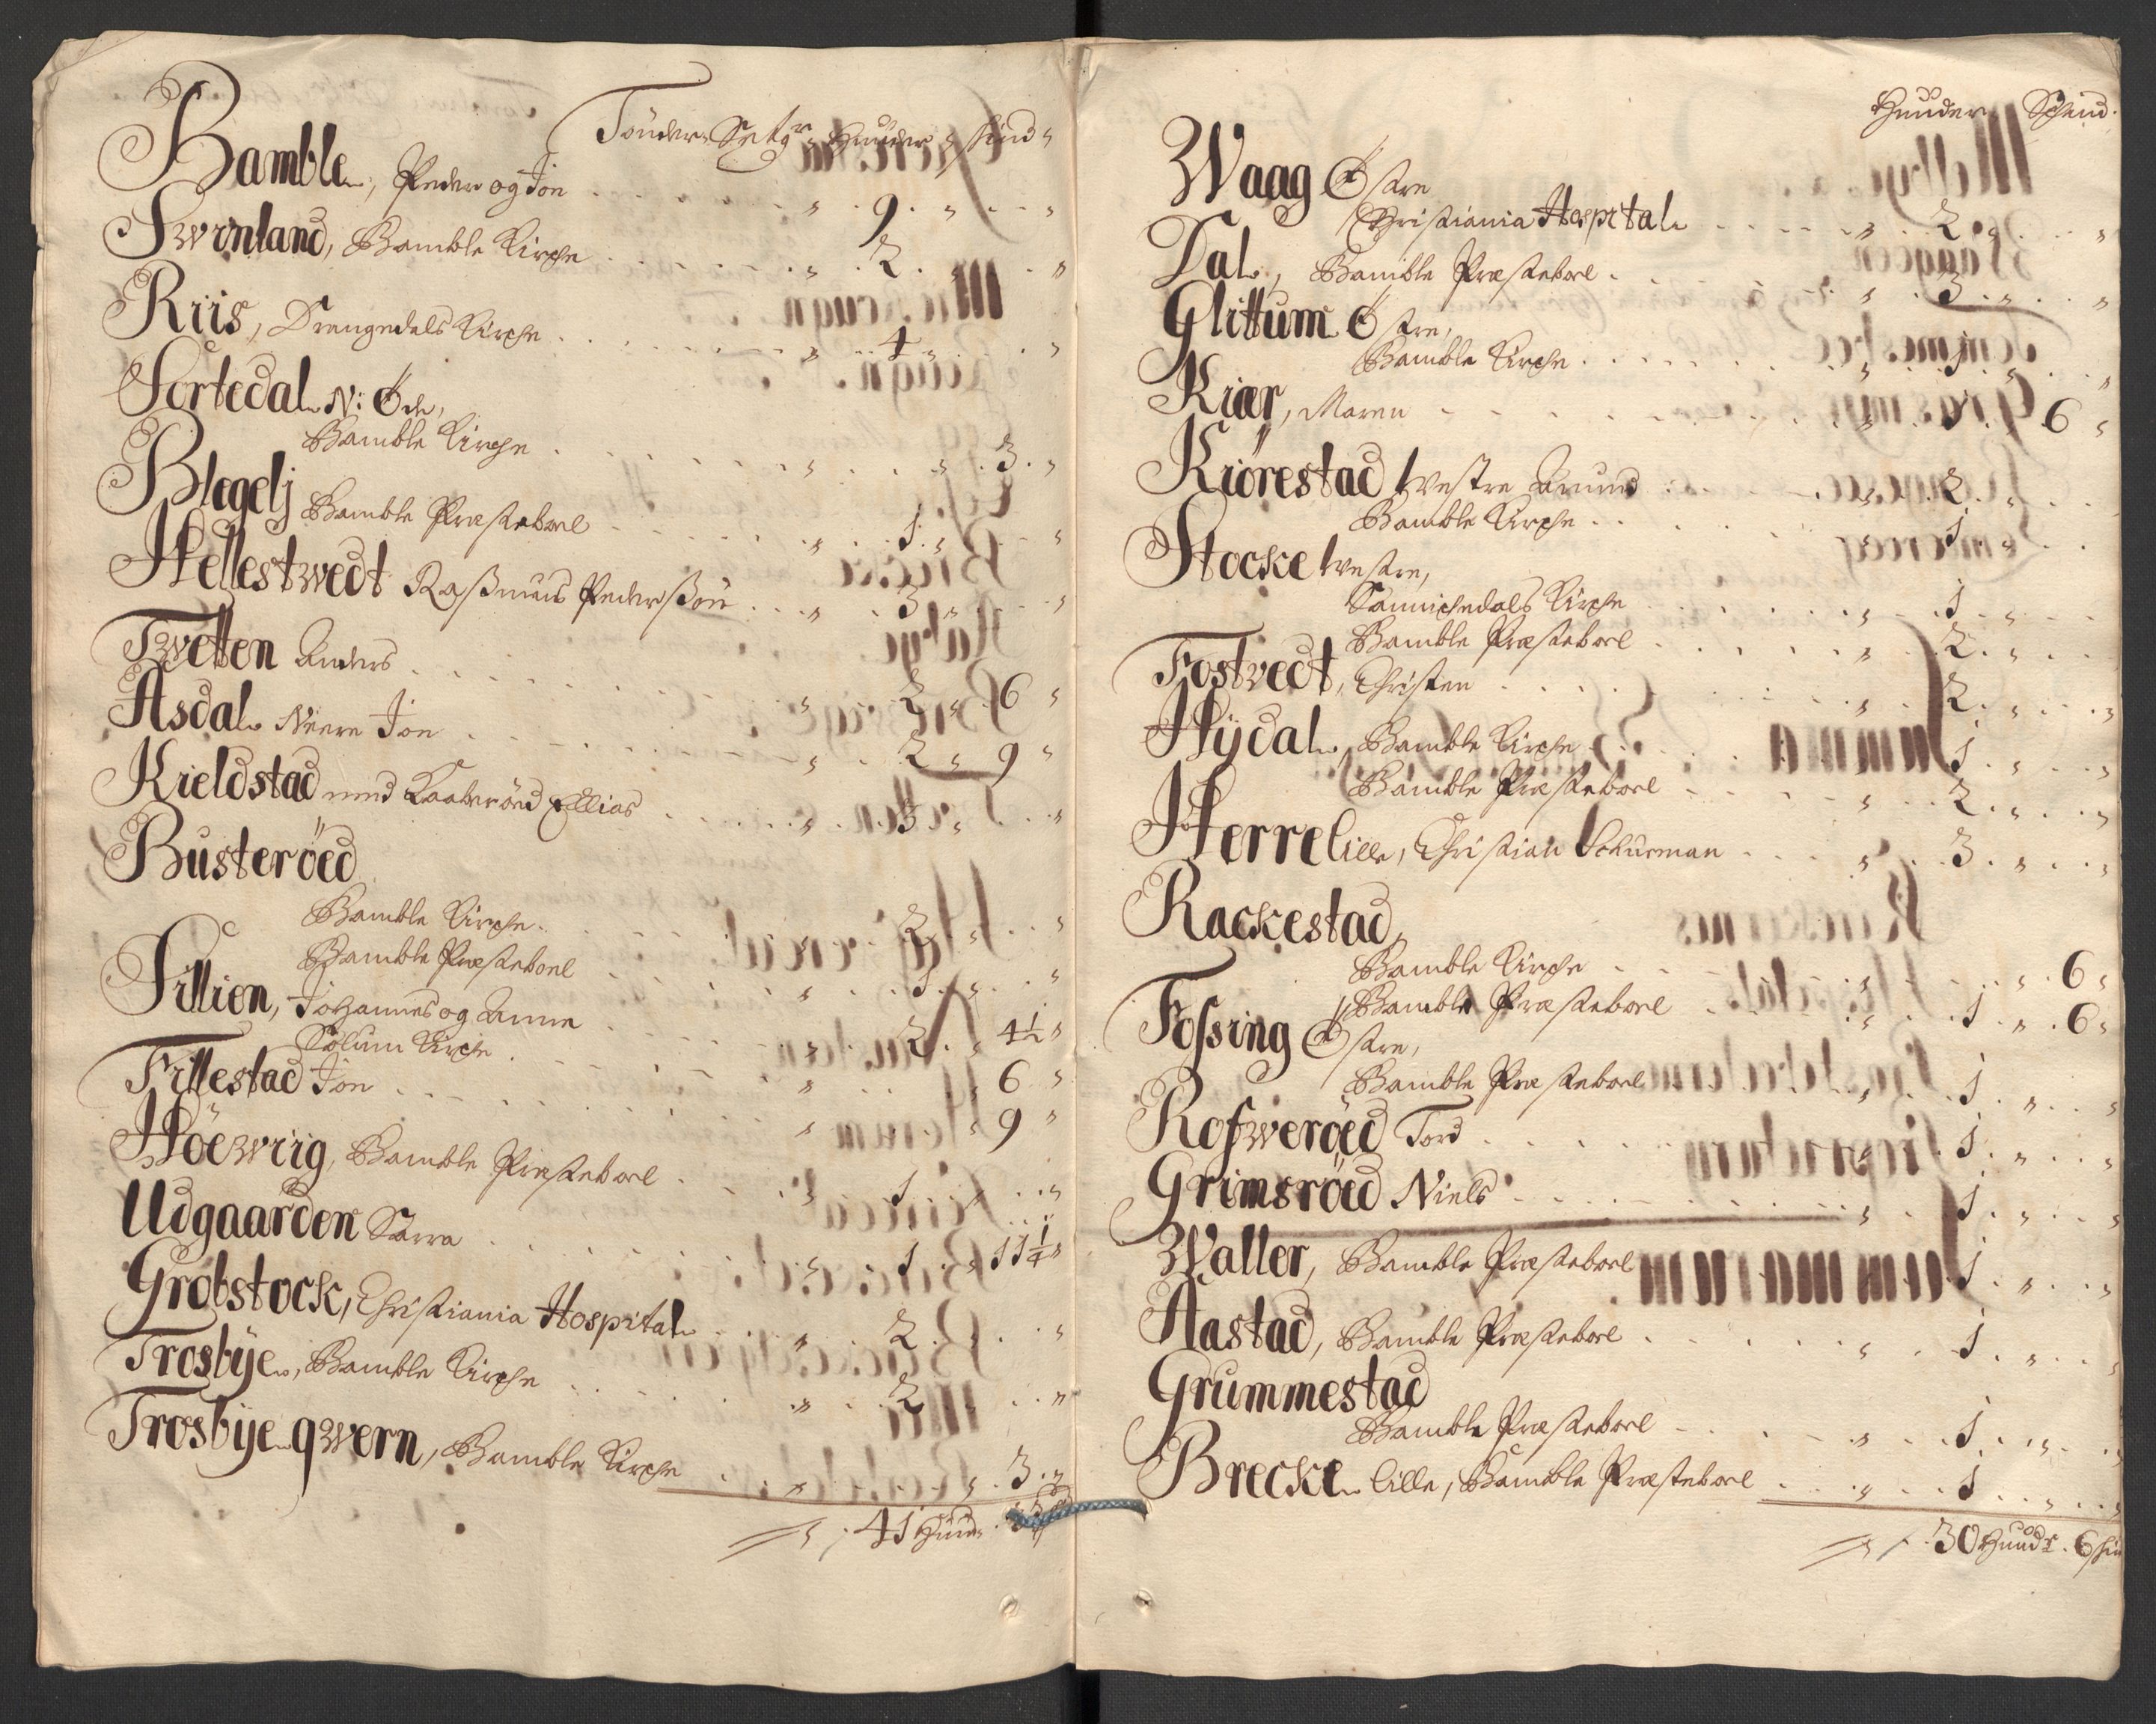 Tönder Setgr Huuder skind
Bamble, Peder og Jon . . . " 9 . " . . "
Swinland, Bamble Kirche . . . " 2 . " . "
Riis, Drangedals Kirche . . . " 4 " . . "
Sortedal N: Øde,
Bamble Kirche . . . " . . " . 3 . "
Blegelj Bamble Præsteboel . . . " . 1 . " . . "
Hellestwedt Rasmus Pedersøn . . . " . 3 . " . . "
Twetten Anders . . . " 2 " . 6 "
Asdal Neere Jon . . . " . 2 " 9 "
Kieldstad med Kaaterød Ellias . . . " . 3 . " . . "
Busterøed
Bamble Kirche . . . 2 . " . . "
Bamble Præsteboel . . . " . . 1 . " . . "
Tillien, Johannes og Anne . . . 2 . " 4½ "
Solum Kirche . . . " . . 6 "
Fillestad Jon . . . " . . 9 "
Höewiig, Bamble Præsteboel . . . " . 1 . " . . "
Udgaarden Sarra . . . " 1 . " 11¼ "
Grobstock, Christiania Hospital . . . " 2 . " . . "
Trosbye, Bamble Kirche . . . " . 2 . " . . "
Trosbye qwern, Bamble Kirche . . . " . . " . 3 . "
" . 41 Huud.
Huuder Schind.
Waag Østre
Christiania Hospital . . . " . 2 . " . . "
Dal, Bamble Præsteboel . . . " . 3 . " . . "
Glittum Østre,
Bamble Kirche . . . " . 1 . " . . "
Kiær, Maren . . . " . 1 . " 6 "
Kiörestad westre Amund . . . 2 . " . .
Bamble Kirche . . . 1 . " . .
Stocke westre,
Sannichedals Kirche . . . " . 1 . " . .
Bamble Præsteboel . . . " . 2 . " . .
Fostvedt, Christen . . . " . 2 . " . . "
Hydal, Bamble Kirche . . . 1 . " . . "
Bamble Præsteboel . . . " . 2 . " . . "
Herre lille, Christian Schurman . . . " . 3 . " . . "
Rackestad,
Bamble Kirche . . . " . . " . 6 "
Bamble Præsteboel . . . " . 1 . " . 6 "
Fossing Østre,
Bamble Præsteboel . . . 1 . " . . "
Rofweröed Tord . . . " . 1 . " . . "
Grimsröed Niels . . . " . 1 . " . . "
Waller, Bamble Præsteboel . . . 1 . " . . "
Aastad, Bamble Præsteboel . . . " . 1 . " . . "
Grummestad
Bamble Præsteboel . . . " . 1 . " . . "
Brecke lille, Bamble Præsteboel . . . " . 1 . " . . "
" . 30 Huudr . 6 skin